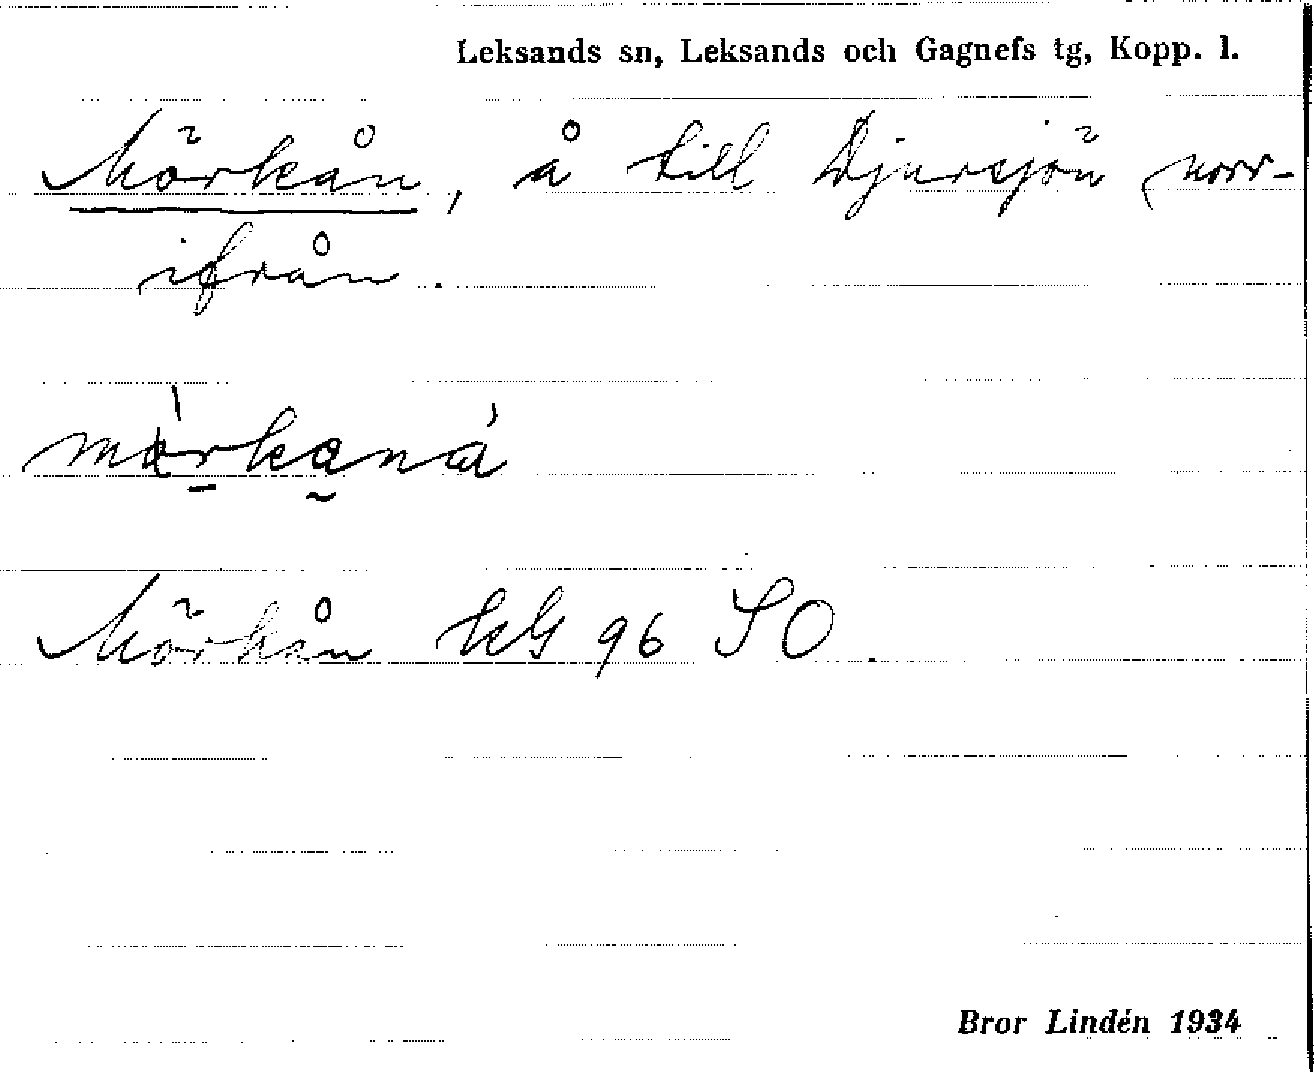 Leksands sn, Leksands och Gagnefs tg, Kopp. l.
Mörkån, å till Djursjön norr-
ifrån.
Mörkån kG 96 SO.
Bror Lindén 1934